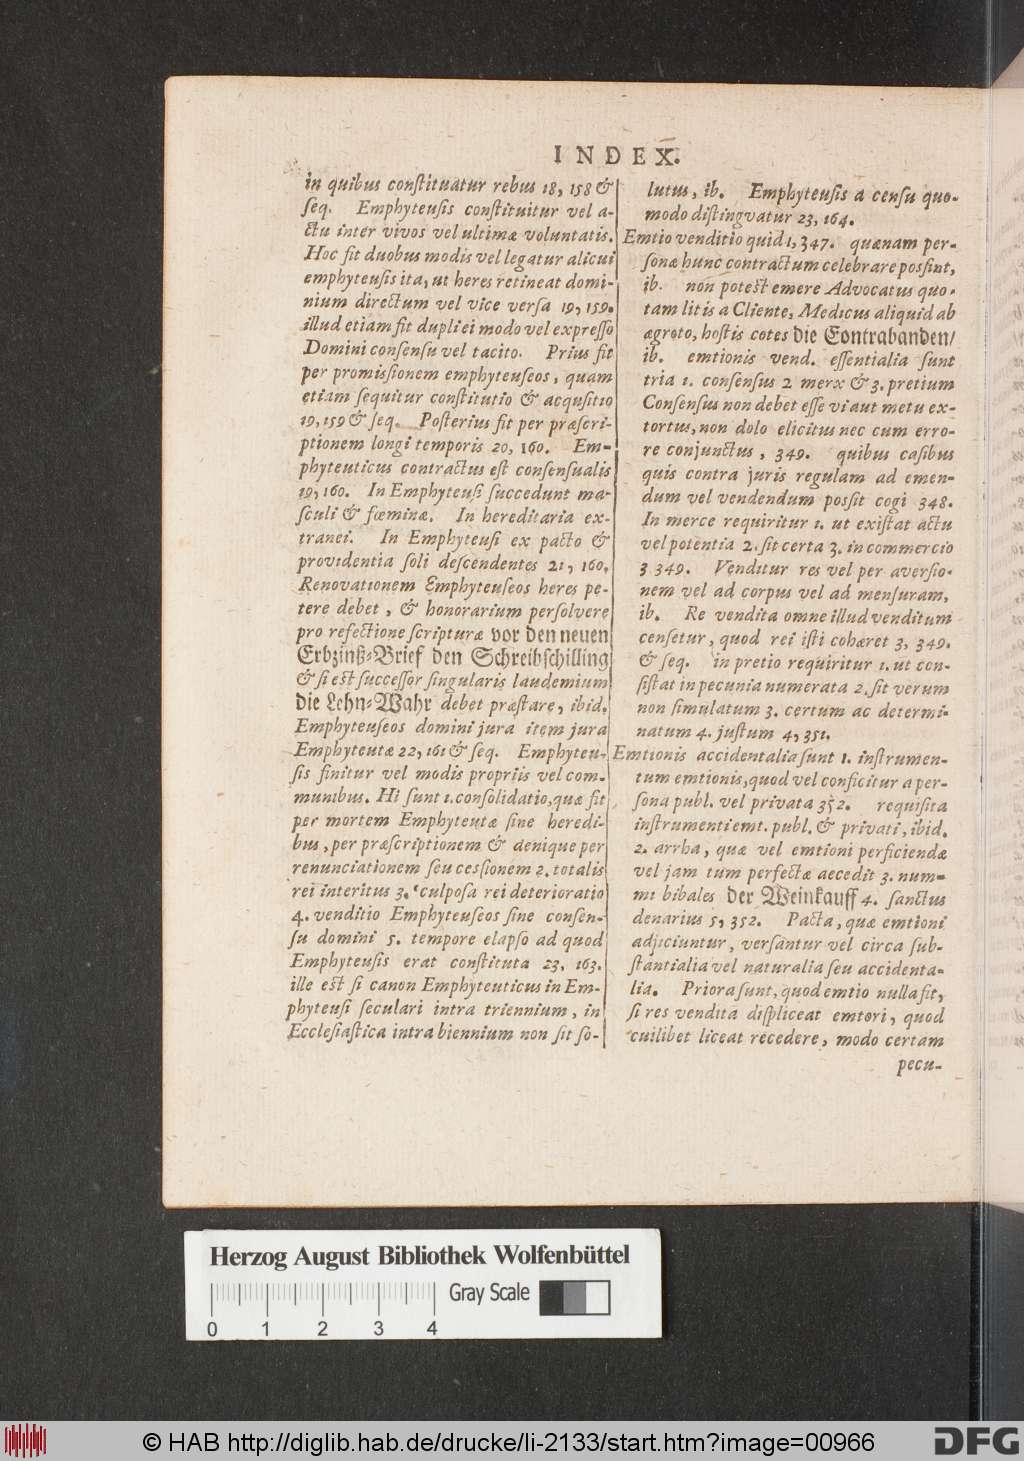 INDEX.
in quibus conſtituatur rebus 18, 158 &
ſeq. Emphyteuſis conſtituitur vel a-
ctu inter vivos vel ultimæ voluntatis.
Hoc fit duobus modis vel legatur alicui
emphyteuſis ita, ut heres retineat domi-
nium directum vel vice verſa 19, 159.
illud etiam fit duplici modo vel expreſſo
Domini conſenſu vel tacito. Prius fit
per promiſſionem emphyteuſeos, quam
etiam ſequitur conſtitutio & acquſitio
19, 159 & ſeq. Poſterius fit per præſcri-
ptionem longi temporis 20, 160. Em-
phyteuticus contractus eſt conſenſualis
19, 160. In Emphyteuſi ſuccedunt ma-
ſculi & fœminæ. In hereditaria ex-
tranei. In Emphyteuſi ex pacto &
providentia ſoli deſcendentes 21, 160.
Renovationem Emphyteuſeos heres pe-
tere debet, & honorarium perſolvere
pro refectione ſcripturæ vor den neuen
Erbzinß-Brief den Schreibſchilling
& ſi eſt ſucceſſor ſingularis laudemium
die Lehn-Wahr debet præſtare, ibid.
Emphyteuſeos domini jura item jura
Emphyteutæ 22, 161 & ſeq. Emphyteu-
ſis finitur vel modis propriis vel com-
munibus. Hi ſunt 1. conſolidatio, quæ fit
per mortem Emphyteutæ ſine heredi-
bus, per præſcriptionem & denique per
renunciationem ſeu ceſſionem 2. totalis
rei interitus 3. culpoſa rei deterioratio
4. venditio Emphyteuſeos ſine conſen-
ſu domini 5. tempore elapſo ad quod
Emphyteuſis erat conſtituta 23, 163.
ille eſt ſi canon Emphyteuticus in Em-
phyteuſi ſeculari intra triennium, in
Eccleſiaſtica intra biennium non ſit ſo-
lutus, ib. Emphyteuſis a cenſu quo-
modo diſtingvatur 23, 164.
Emtio venditio quid 1, 347. quænam per-
ſonæ hunc contractum celebrare poſſint,
ib. non poteſt emere Advocatus quo-
tam litis a Cliente, Medicus aliquid ab
ægroto, hoſtis cotes die Contrabanden/
ib. emtionis vend. eſſentialia ſunt
tria 1. conſenſus 2 merx & 3. pretium
Conſenſus non debet eſſe vi aut metu ex-
tortus, non dolo elicitus nec cum erro-
re conjunctus, 349. quibus caſibus
quis contra juris regulam ad emen-
dum vel vendendum poſſit cogi 348.
In merce requiritur 1. ut exiſtat actu
vel potentia 2. ſit certa 3. in commercio
3 349. Venditur res vel per averſio-
nem vel ad corpus vel ad menſuram,
ib. Re vendita omne illud venditum
cenſetur, quod rei iſti cohæret 3, 349.
& ſeq. in pretio requiritur 1. ut con-
ſiſtat in pecunia numerata 2. ſit verum
non ſimulatum 3. certum ac determi-
natum 4. juſtum 4, 351.
Emtionis accidentalia ſunt 1. inſtrumen-
tum emtionis, quod vel conficitur a per-
ſona publ. vel privata 352. requiſita
inſtrumenti emt. publ. & privati, ibid.
2. arrha, quæ vel emtioni perficiendæ
vel jam tum perfectæ aecedit 3. num-
mi bibales der Weinkauff 4. ſanctus
denarius 5, 352. Pacta, quæ emtioni
adjiciuntur, verſantur vel circa ſub-
ſtantialia vel naturalia ſeu accidenta-
lia. Priora ſunt, quod emtio nulla ſit,
ſi res vendita diſpliceat emtori, quod
cuilibet liceat recedere, modo certam
pecu-
Herzog August Bibliothek Wolfenbüttel
Gray Scale
0 1 2 3 4
© HAB http://diglib.hab.de/drucke/li-2133/start.htm?image=00966
DFG